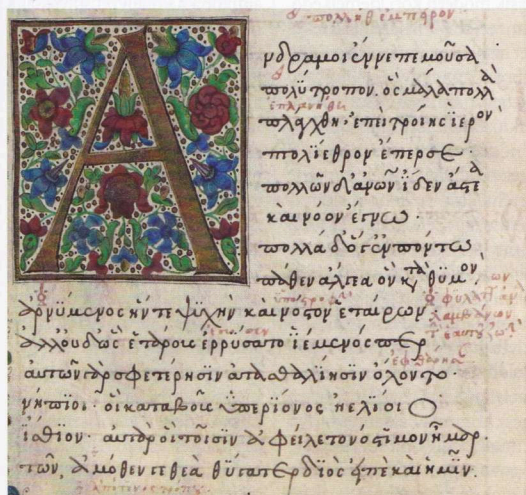 Ανδρα μοι ἔννεπε μοῦσα
πολύτροπον. ὃς μάλα πολλὰ
ἐπλανήθη
πλάγχθη, ἐπεὶ τροίης ἱερὸν
πτολίεθρον ἔπερσε·
πολλῶν δ' ἀνῶν ἴδεν ἄστεα
καὶ νόον ἔγνω·
πολλὰ δ' ὅγ' ἐν πόντω
πάθεν ἄλγεα ὃν κατὰ θυμὸν
ἀρνύμενος ἥν τε ψυχὴν καὶ νόστον ἑταίρων
ἀλλ' οὐδ' ὣς ἑτάρους ἐρρύσατο ἱέμενός περ
αὐτῶν γὰρ σφετέρησιν ἀτασθαλίησιν ὄλοντο·
νήπιοι· οἳ κατὰ βοῦς ὑπερίονος ἠελίοιο
ἤσθιον· αὐτὰρ ὁ τοῖσιν ἀφείλετο νόστιμον ἦμαρ·
τῶν, ἀμόθεν γε θεὰ θύγατερ διὸς εἰπὲ καὶ ἡμῖν.